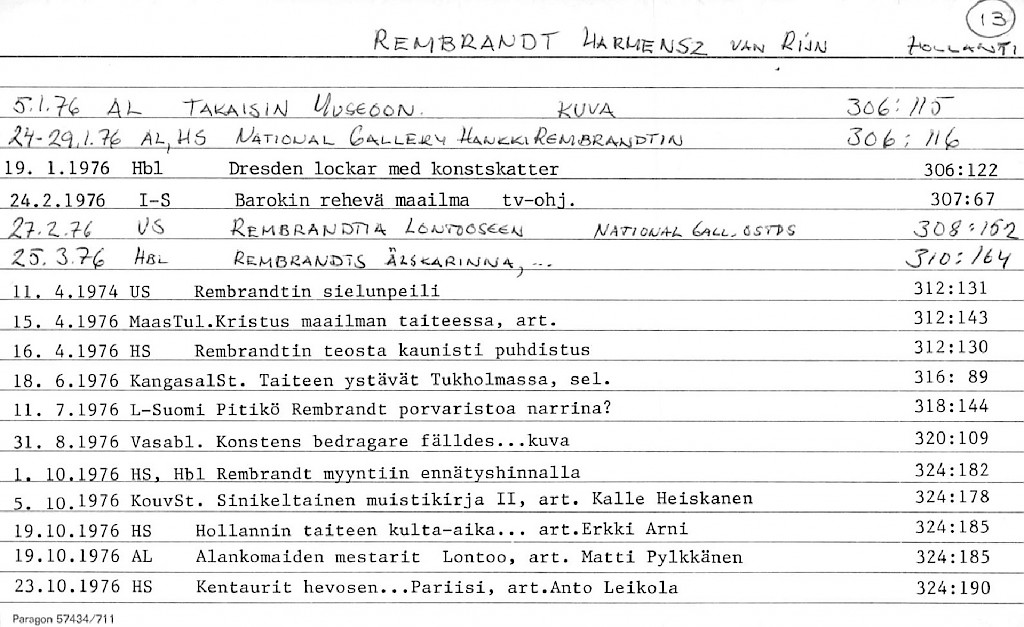 13
REMBRANDT HARMENSZ VAN RIJN HOLLANTI
5.1.76 AL TAKAISIN MUSEOON. KUVA 306:115
24-29.1.76 AL, HS NATIONAL GALLERY HANKKI REMBRANDTIN 306:116
19. 1.1976 Hbl Dresden lockar med konstskatter 306:122
24.2.1976 I-S Barokin rehevä maailma tv-ohj. 307:67
27.2.76 US REMBRANDTIA LONTOOSEEN NATIONAL GALL. OSTOS 308:152
25.3.76 HBL REMBRANDTS ÄLSKARINNA,... 310:164
11. 4.1974 US Rembrandtin sielunpeili 312:131
15. 4.1976 MaasTul.Kristus maailman taiteessa, art. 312:143
16. 4.1976 HS Rembrandtin teosta kaunisti puhdistus 312:130
18. 6.1976 KangasalSt. Taiteen ystävät Tukholmassa, sel. 316: 89
11. 7.1976 L-Suomi Pitikö Rembrandt porvaristoa narrina? 318:144
31. 8.1976 Vasabl. Konstens bedragare fälldes...kuva 320:109
1. 10.1976 HS, Hbl Rembrandt myyntiin ennätyshinnalla 324:182
5. 10.1976 KouvSt. Sinikeltainen muistikirja II, art. Kalle Heiskanen 324:178
19.10.1976 HS Hollannin taiteen kulta-aika... art.Erkki Arni 324:185
19.10.1976 AL Alankomaiden mestarit Lontoo, art. Matti Pylkkänen 324:185
23.10.1976 HS Kentaurit hevosen...Pariisi, art.Anto Leikola 324:190
Paragon 57434/711